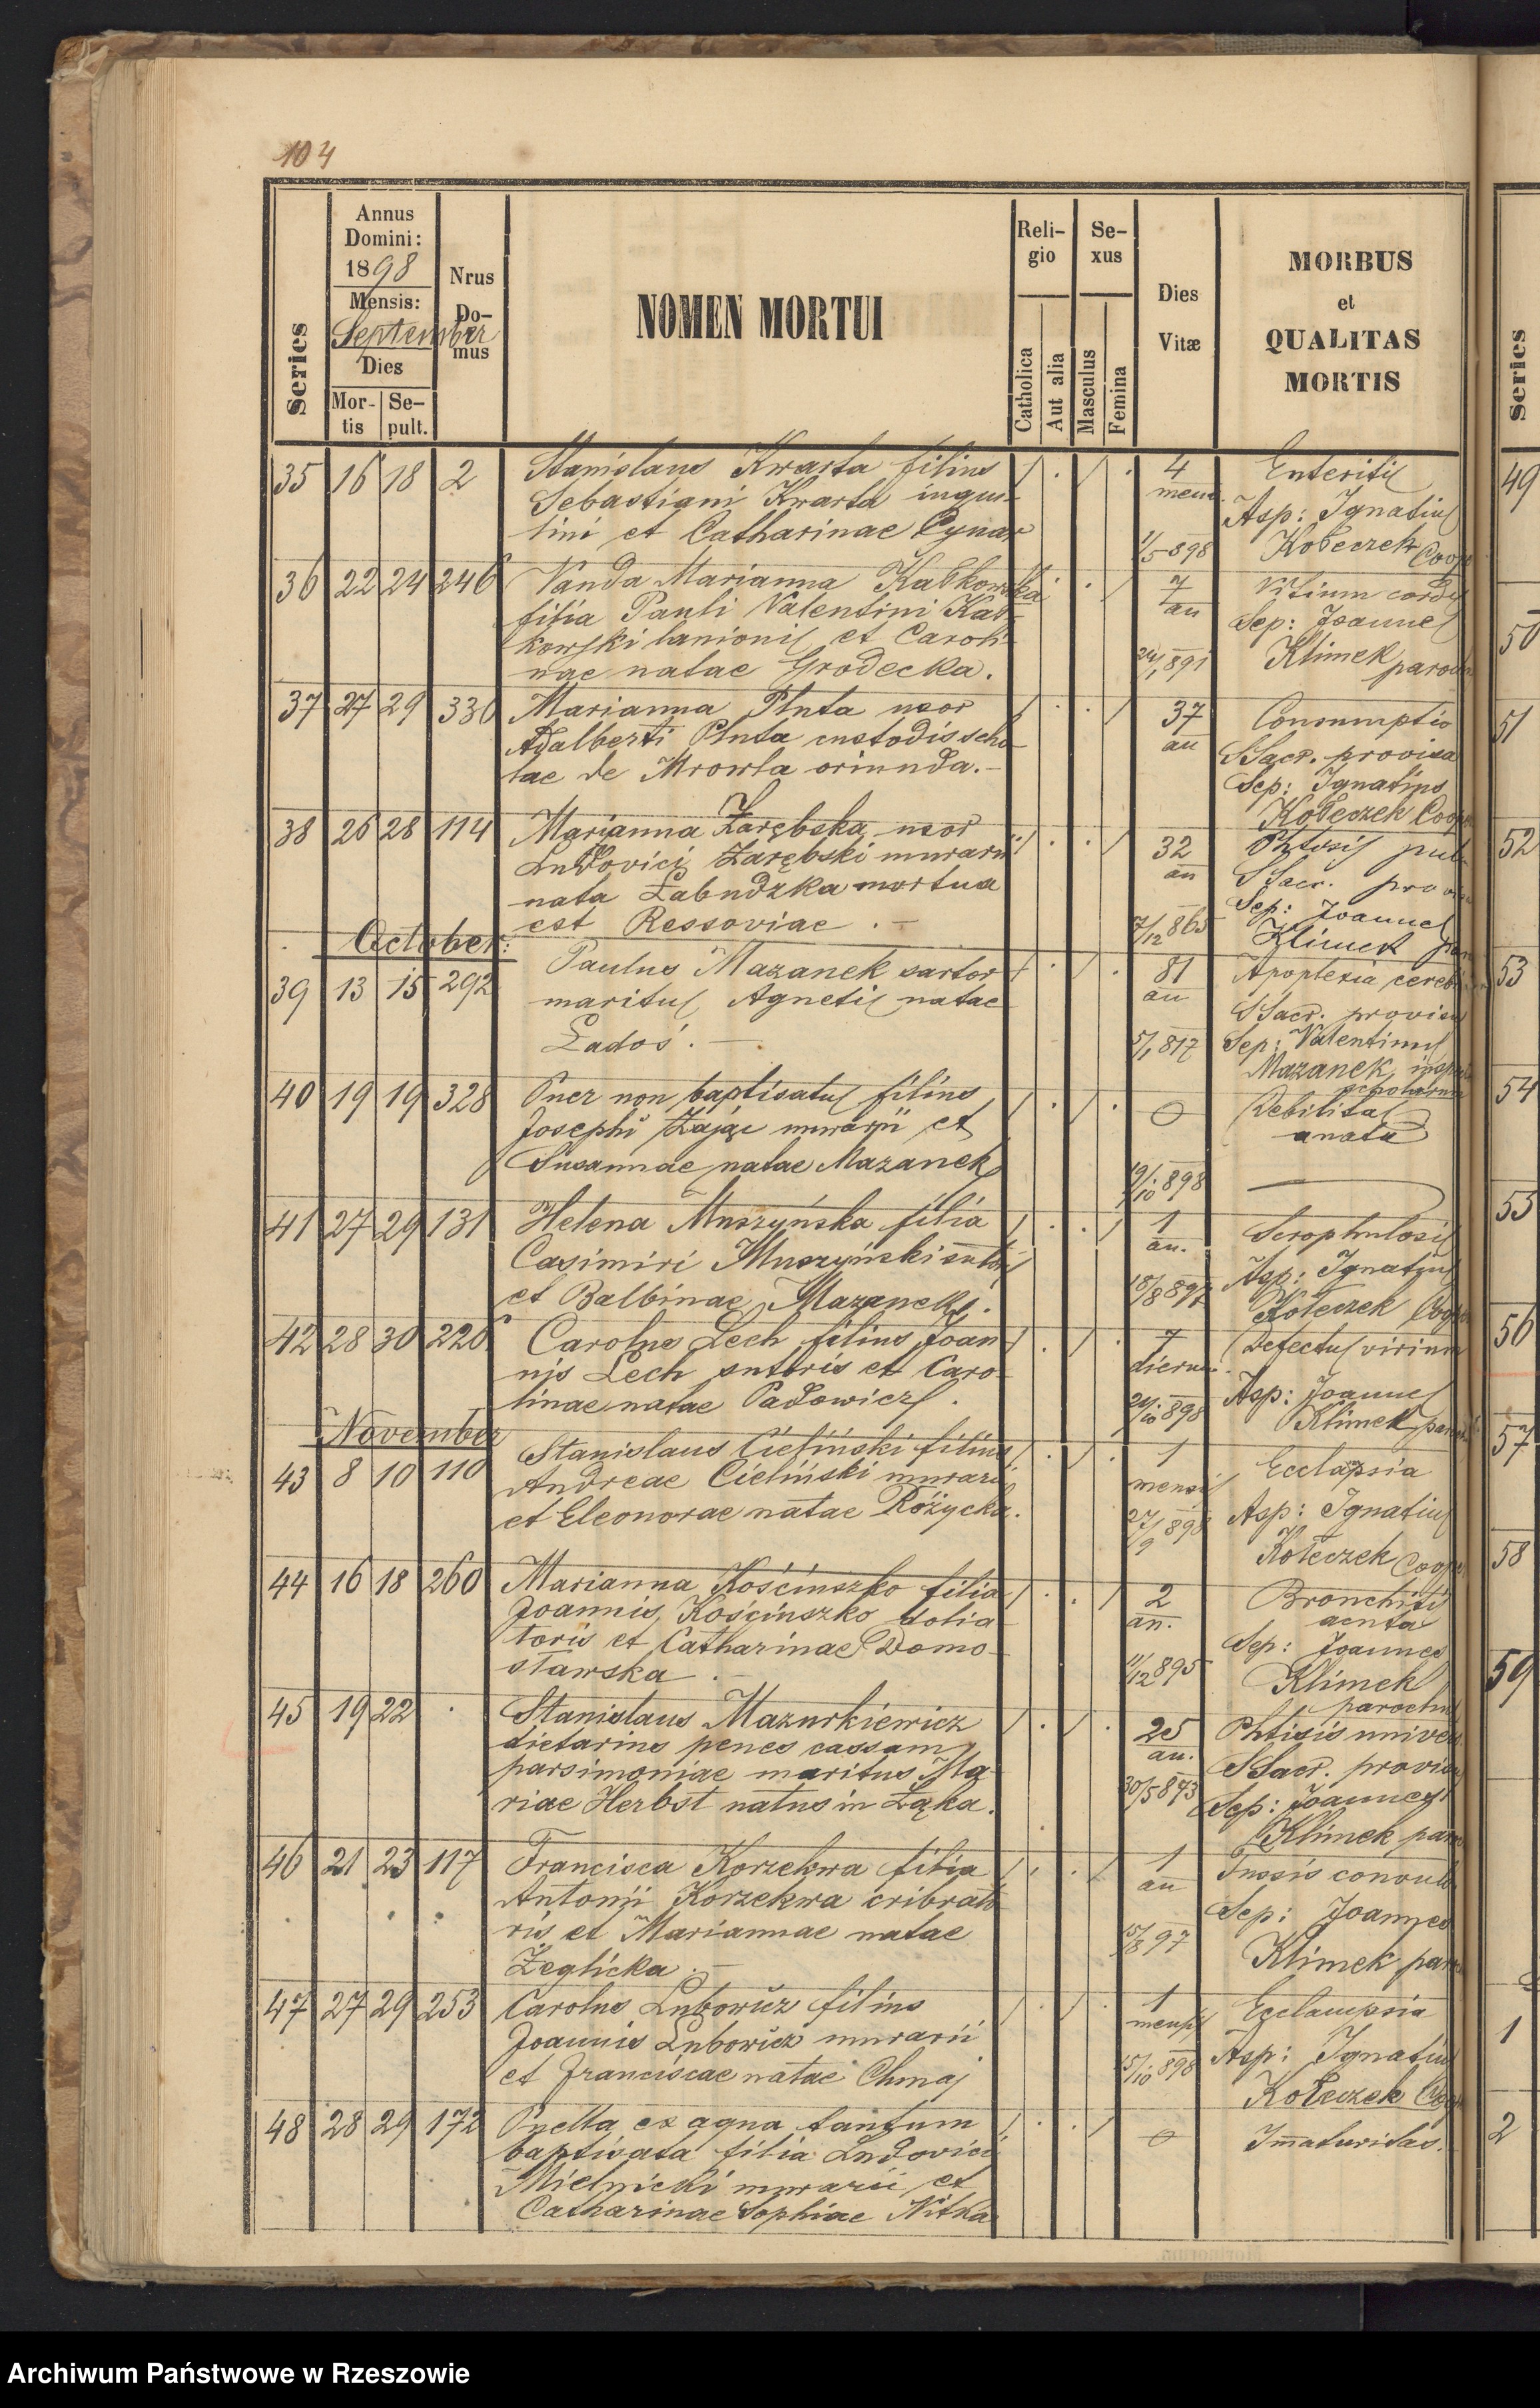 104
Series
Annus
Domini:
1898
Mensis:
September
Dies
Mor-
tis
Se-
pult.
Nrus
Do-
mus
NOMEN MORTUI
Reli-
gio
Catholica
Aut alia
Se-
xus
Masculus
Femina
Dies
Vitæ
MORBUS
et
QUALITAS
MORTIS
35 16 18 2
Stanislaus Kwarta filius
Sebastiani Kwarta inqui-
lini et Catharinae Cynar
4
mens.
1/5 898
Enteritis
Asp: Ignatius
Kołeczek Coop
36 22 24 246
Vanda Marianna Kałkowska
filia Pauli Valentini Kał-
kowski lanionis et Caroli-
nae natae Grodecka.
7
an
24/1 891
Vitium cordis
Sep: Joannes
Klimek paroch
37 27 29 330
Marianna Pluta uxor
Adalberti Pluta custodis scho-
lae de Mrowla oriunda. —
37
an
Consumptio
SSacr. provisa
Sep: Ignatius
Kołeczek Coop
38 26 28 114
Marianna Zarębska uxor
Ludovici Zarębski murarii
nata Łabudzka mortua
est Ressoviae . —
32
an
7/12 865
Phtosis pul
SSacr. provi
Sep: Joannes
Klimek par
October:
39 13 15 292
Paulus Mazanek sartor
maritus Agnetis natae
Ładoś. —
81
an
5/1 817
Apoplexia cereb
SSacr. provisu
Sep: Valentinus
Mazanek insp
scholarum
40 19 19 328
Puer non baptisatus filius
Josephi Zając murarii et
Susannae natae Mazanek
0
19/10 898
Debilitas
anata
41 27 29 131
Helena Muszyńska filia
Casimiri Muszyński sutoris
et Balbinae Mazanek.
1
an.
18/8 897
Scrophulosis
Asp: Ignatius
Kołeczek Coop
42 28 30 226
Carolus Lech filius Joan-
nis Lech sutoris et Caro-
linae natae Padowicz .
7
dierum
21/10 898
Defectus virium
Asp: Joannes
Klimek paroch
November
43 8 10 110
Stanislaus Cieliński filius
Andreae Cieliński murarii
et Eleonorae natae Różycka.
1
mensis
27/9 898
Ecclapsia
Asp: Ignatius
Kołeczek Coop
44 16 18 260
Marianna Kościuszko filia
Joannis Kościuszko dolia-
toris et Catharinae Domo-
sławska . —
2
an.
11/12 895
Bronchitis
acuta
Sep: Joannes
Klimek
parochus
45 19 22 .
Stanislaus Mazurkiewicz
dietarius penes cassam
parsimoniae maritus Ma-
riae Herbst natus in Łąka.
25
an.
30/5 873
Phtisis univer
SSacr. provisu
Sep: Joannes
Klimek paro
46 21 23 117
Francisca Korzekwa filia
Antonii Korzekwa cribrato-
ris et Mariannae natae
Żeglicka . —
1
an
15/8 97
Tussis convul
Sep: Joannes
Klimek paro
47 27 29 253
Carolus Lubowicz filius
Joannis Lubowicz murarii
et Franciscae natae Chmaj
1
mensis
15/10 898
Ecclampsia
Asp: Ignatius
Kołeczek Coop
48 28 29 172
Puella ex aqua tantum
baptisata filia Ludovici
Mielnicki murarii et
Catharinae Sophiae Nitka
0
Im̄aturitas.
Series
49
50
51
52
53
54
55
56
57
58
59
1
2
Archiwum Państwowe w Rzeszowie